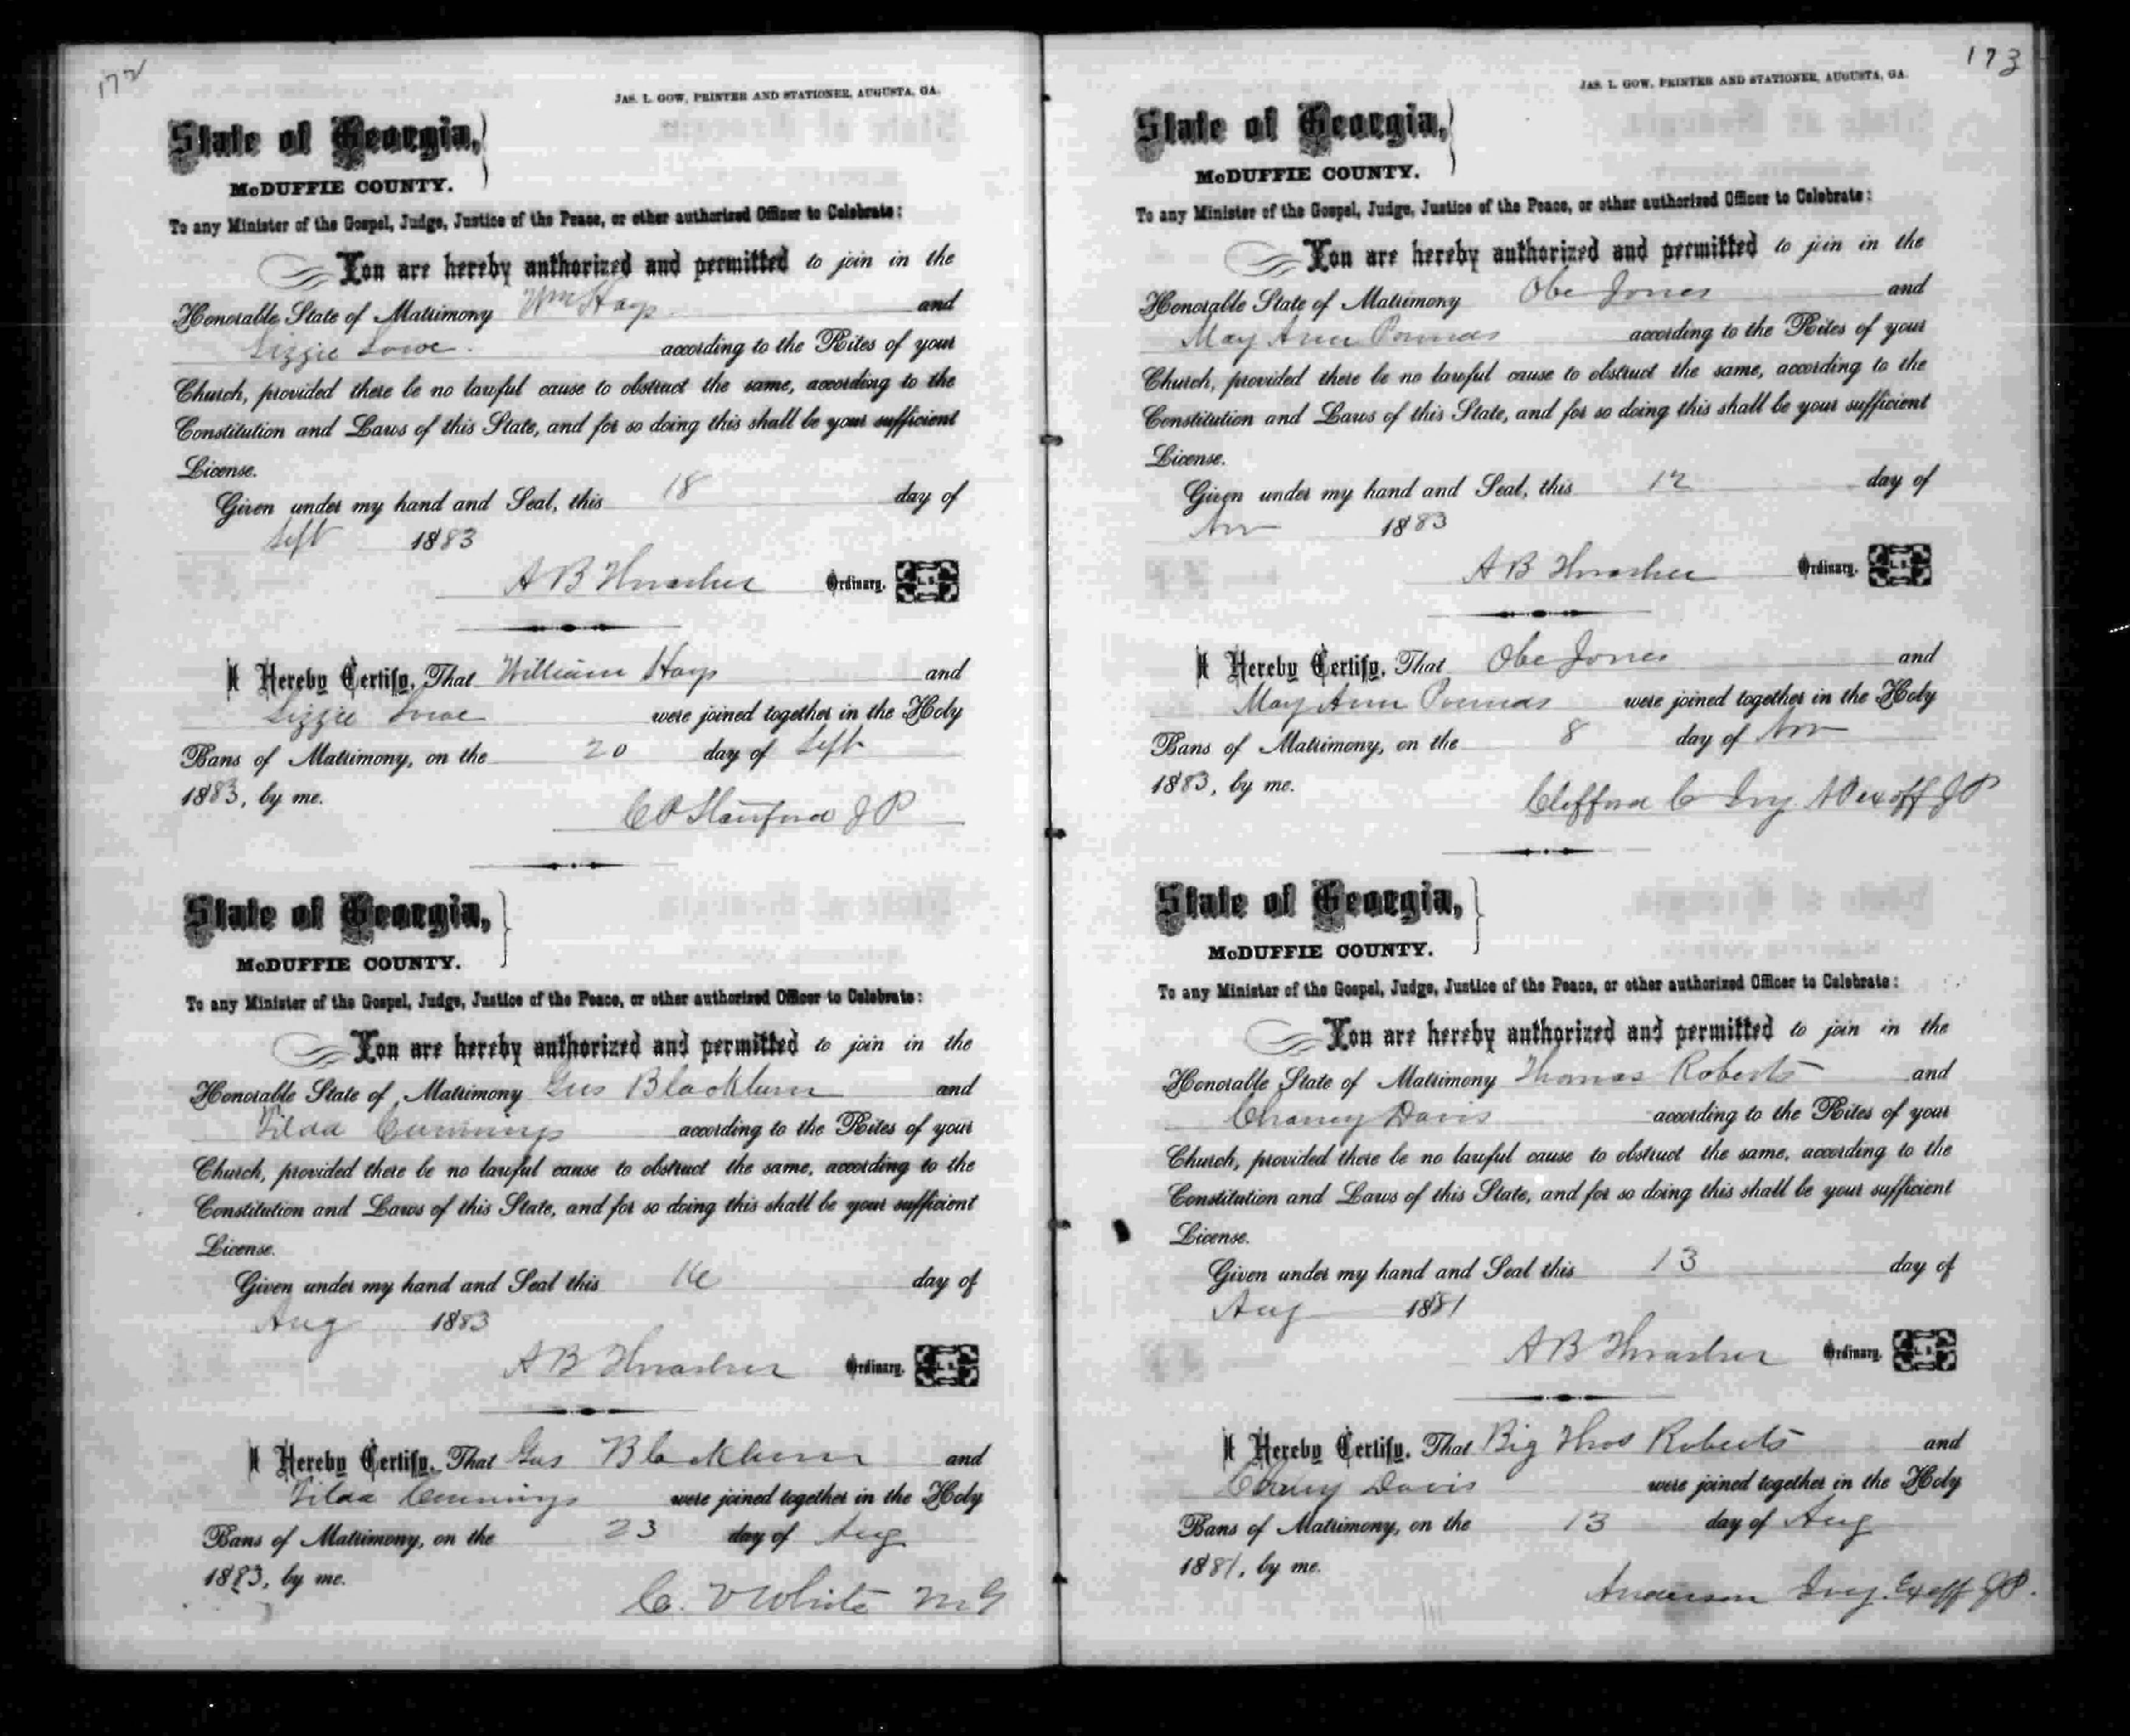 172
JAS. L. GOW, PRINTER AND STATIONER, AUGUSTA, GA.
State of Georgia,
McDUFFIE COUNTY.
To any Minister of the Gospel, Judge, Justice of the Peace, or other authorized Officer to Celebrate:
You are hereby authorized and permitted to join in the
Honorable State of Matrimony Wm Hays and
Lizzie Lowe according to the Rites of your
Church, provided there be no lawful cause to obstruct the same, according to the
Constitution and Laws of this State, and for so doing this shall be your sufficient
License.
Given under my hand and Seal, this 18 day of
Sept 1883
A B Thrasher Ordinary. L. S.
I Hereby Certify, That William Hays and
Lizzie Lowe were joined together in the Holy
Bans of Matrimony, on the 20 day of Sept
1883, by me.
Stanford J P
State of Georgia,
McDUFFIE COUNTY.
To any Minister of the Gospel, Judge, Justice of the Peace, or other authorized Officer to Celebrate:
You are hereby authorized and permitted to join in the
Honorable State of Matrimony Gus Blackburn and
Tilda Cummings according to the Rites of your
Church, provided there be no lawful cause to obstruct the same, according to the
Constitution and Laws of this State, and for so doing this shall be your sufficient
License.
Given under my hand and Seal this 16 day of
Aug 1883
A B Thrasher Ordinary. L. S.
I Hereby Certify, That Gus Blackburn and
Tilda Cummings were joined together in the Holy
Bans of Matrimony, on the 23 day of Aug
1883, by me.
C. V White M G
173
JAS. L. GOW, PRINTER AND STATIONER, AUGUSTA, GA.
State of Georgia,
McDUFFIE COUNTY.
To any Minister of the Gospel, Judge, Justice of the Peace, or other authorized Officer to Celebrate:
You are hereby authorized and permitted to join in the
Honorable State of Matrimony Obe Jones and
May Ann according to the Rites of your
Church, provided there be no lawful cause to obstruct the same, according to the
Constitution and Laws of this State, and for so doing this shall be your sufficient
License.
Given under my hand and Seal, this 12 day of
Nov 1883
A B Thrasher Ordinary. L. S.
I Hereby Certify, That Obe Jones and
May Ann were joined together in the Holy
Bans of Matrimony, on the 8 day of Nov
1883, by me.
Clifford C Ivy NP ex off J P
State of Georgia,
McDUFFIE COUNTY.
To any Minister of the Gospel, Judge, Justice of the Peace, or other authorized Officer to Celebrate:
You are hereby authorized and permitted to join in the
Honorable State of Matrimony Thomas Roberts and
Chaney Davis according to the Rites of your
Church, provided there be no lawful cause to obstruct the same, according to the
Constitution and Laws of this State, and for so doing this shall be your sufficient
License.
Given under my hand and Seal this 13 day of
Aug 1881
A B Thrasher Ordinary. L. S.
I Hereby Certify, That Big Thos Roberts and
Chaney Davis were joined together in the Holy
Bans of Matrimony, on the 13 day of Aug
1881, by me.
Anderson Ivy. Ex off J P.